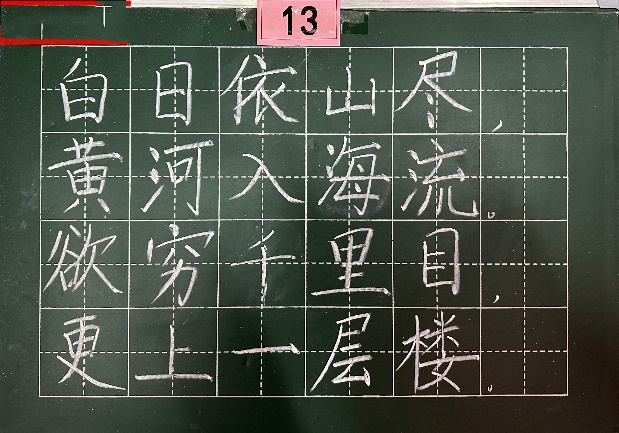 13
白日依山尽，
黄河入海流。
欲穷千里目，
更上一层楼。